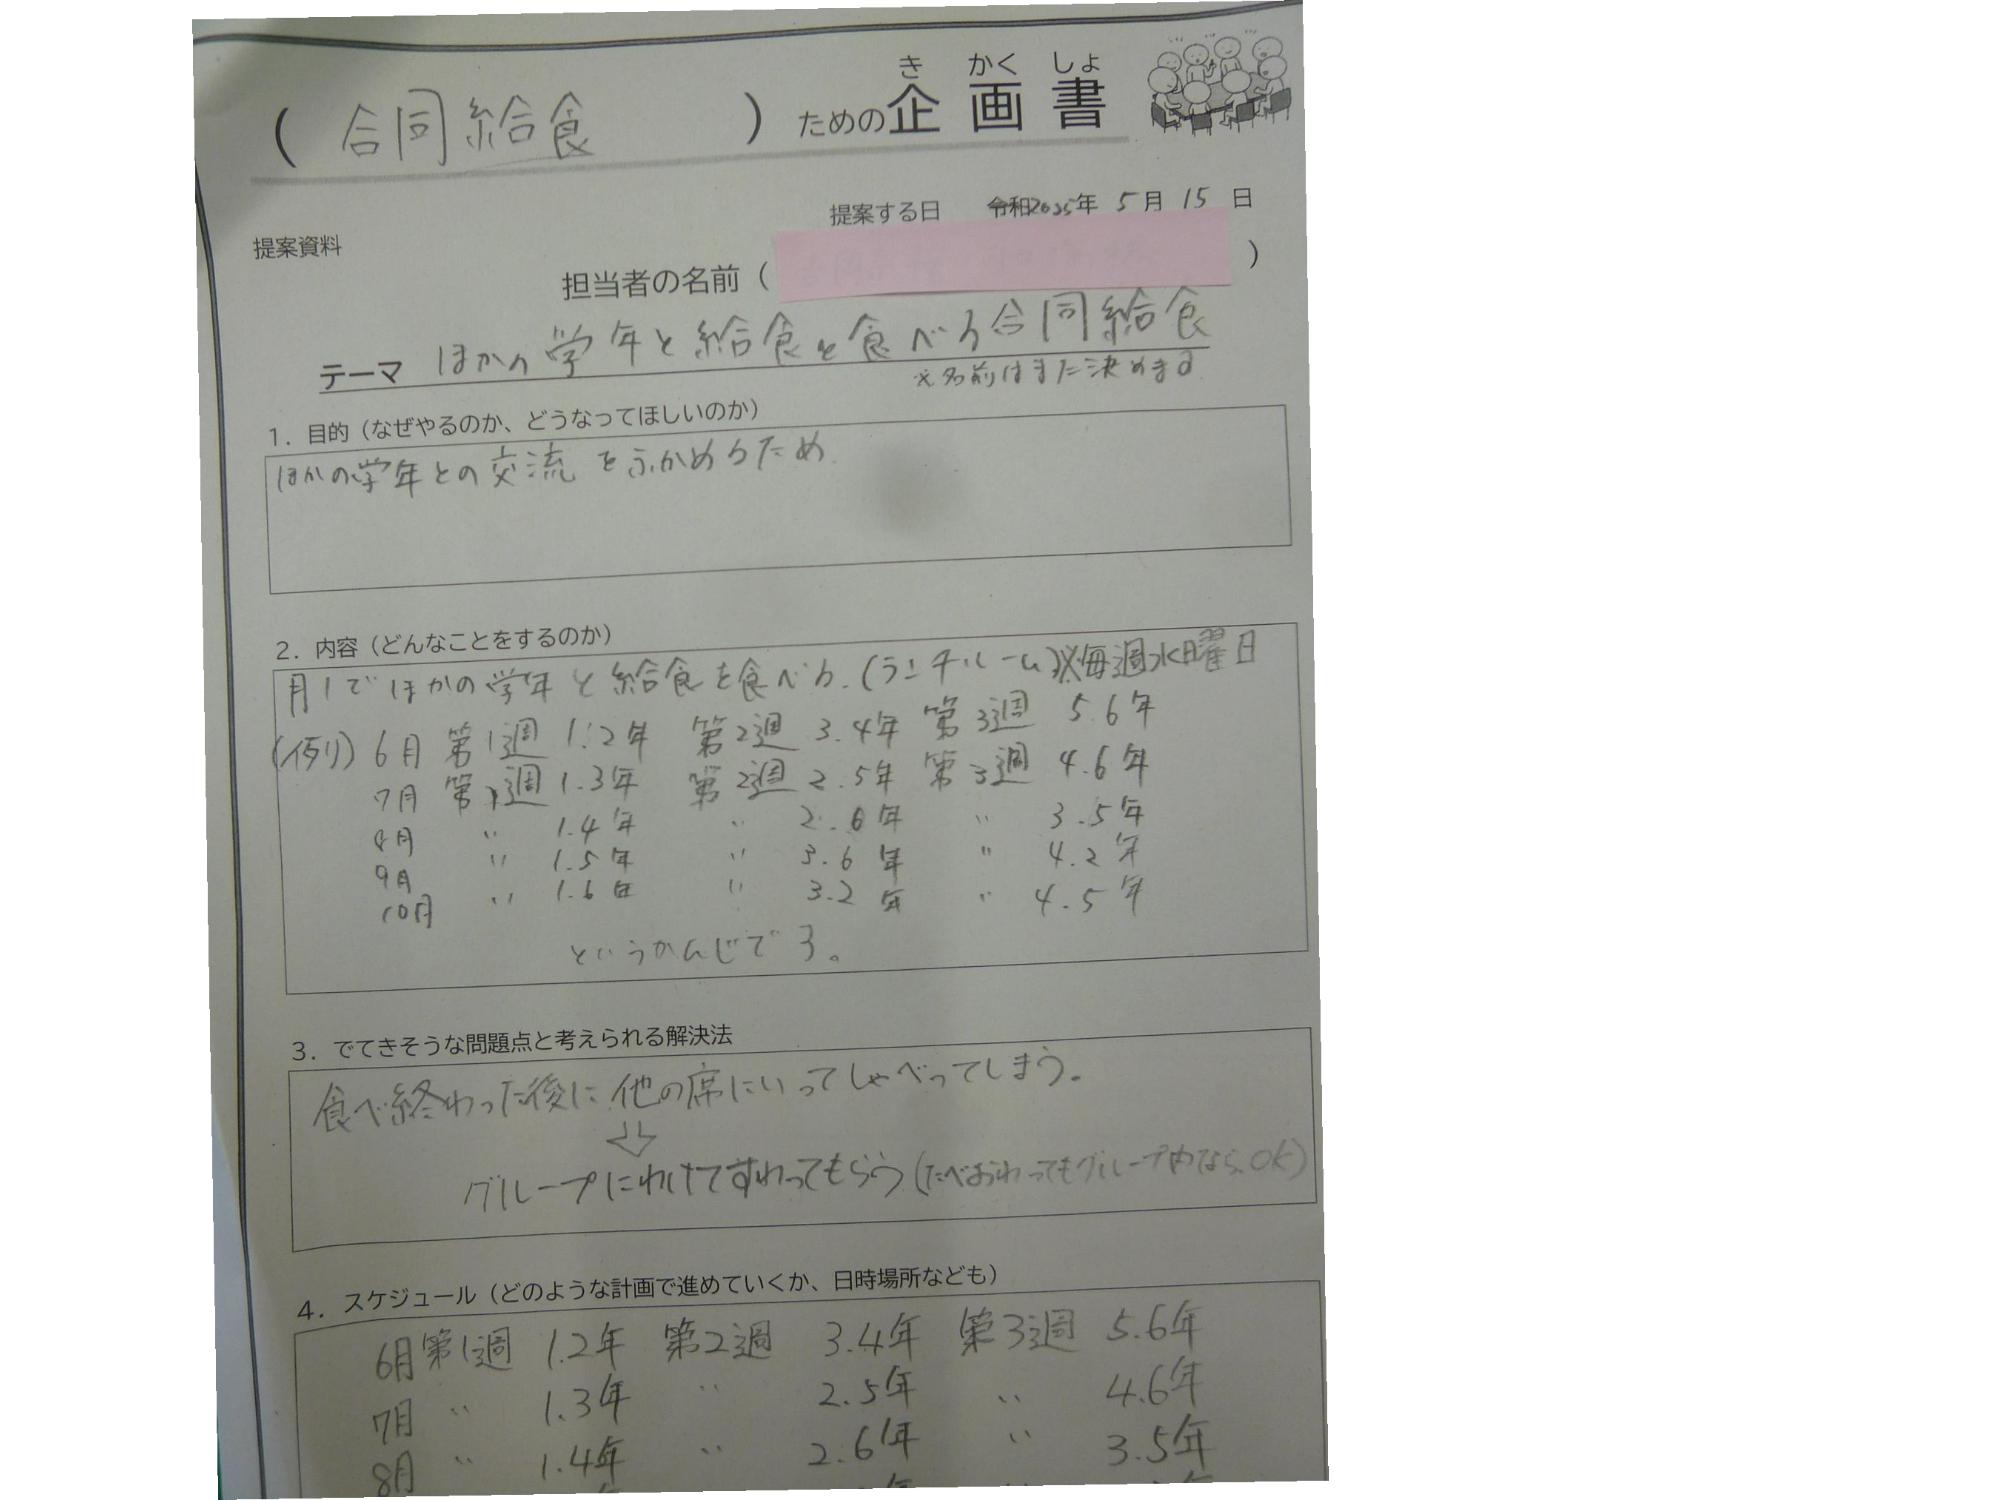 き かく しょ
（ 合同給食 ）ための企画書
提案する日 令和2025年 5月 15日
提案資料
担当者の名前（ ）
テーマ ほかの学年と給食を食べる合同給食
※名前はまた決めます
1．目的（なぜやるのか、どうなってほしいのか）
ほかの学年との交流をふかめるため
2．内容（どんなことをするのか）
月1でほかの学年と給食を食べる.（ランチルーム）※毎週水曜日
（例り）6月 第1週 1.2年 第2週 3.4年 第3週 5.6年
7月 第1週 1.3年 第2週 2.5年 第3週 4.6年
8月 〃 1.4年 〃 2.6年 〃 3.5年
9月 〃 1.5年 〃 3.6年 〃 4.2年
10月 〃 1.6年 〃 3.2年 〃 4.5年
というかんじです。
3．でてきそうな問題点と考えられる解決法
食べ終わった後に他の席にいってしゃべってしまう。
⇩
グループにわけてすわってもらう（たべおわってもグループ内ならOK）
4．スケジュール（どのような計画で進めていくか、日時場所なども）
6月 第1週 1.2年 第2週 3.4年 第3週 5.6年
7月 〃 1.3年 〃 2.5年 〃 4.6年
8月 〃 1.4年 〃 2.6年 〃 3.5年